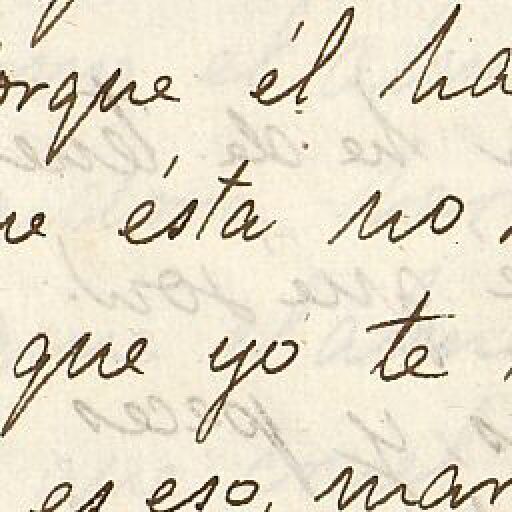 orque él ha
ue ésta no
que yo te
es eso, mar